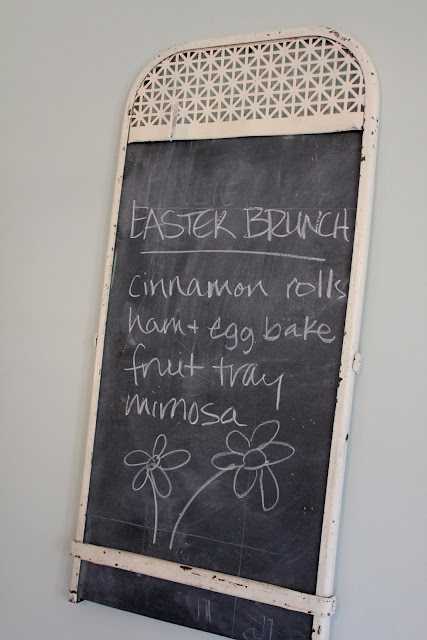 EASTER BRUNCH
cinnamon rolls
ham + egg bake
fruit tray
mimosa